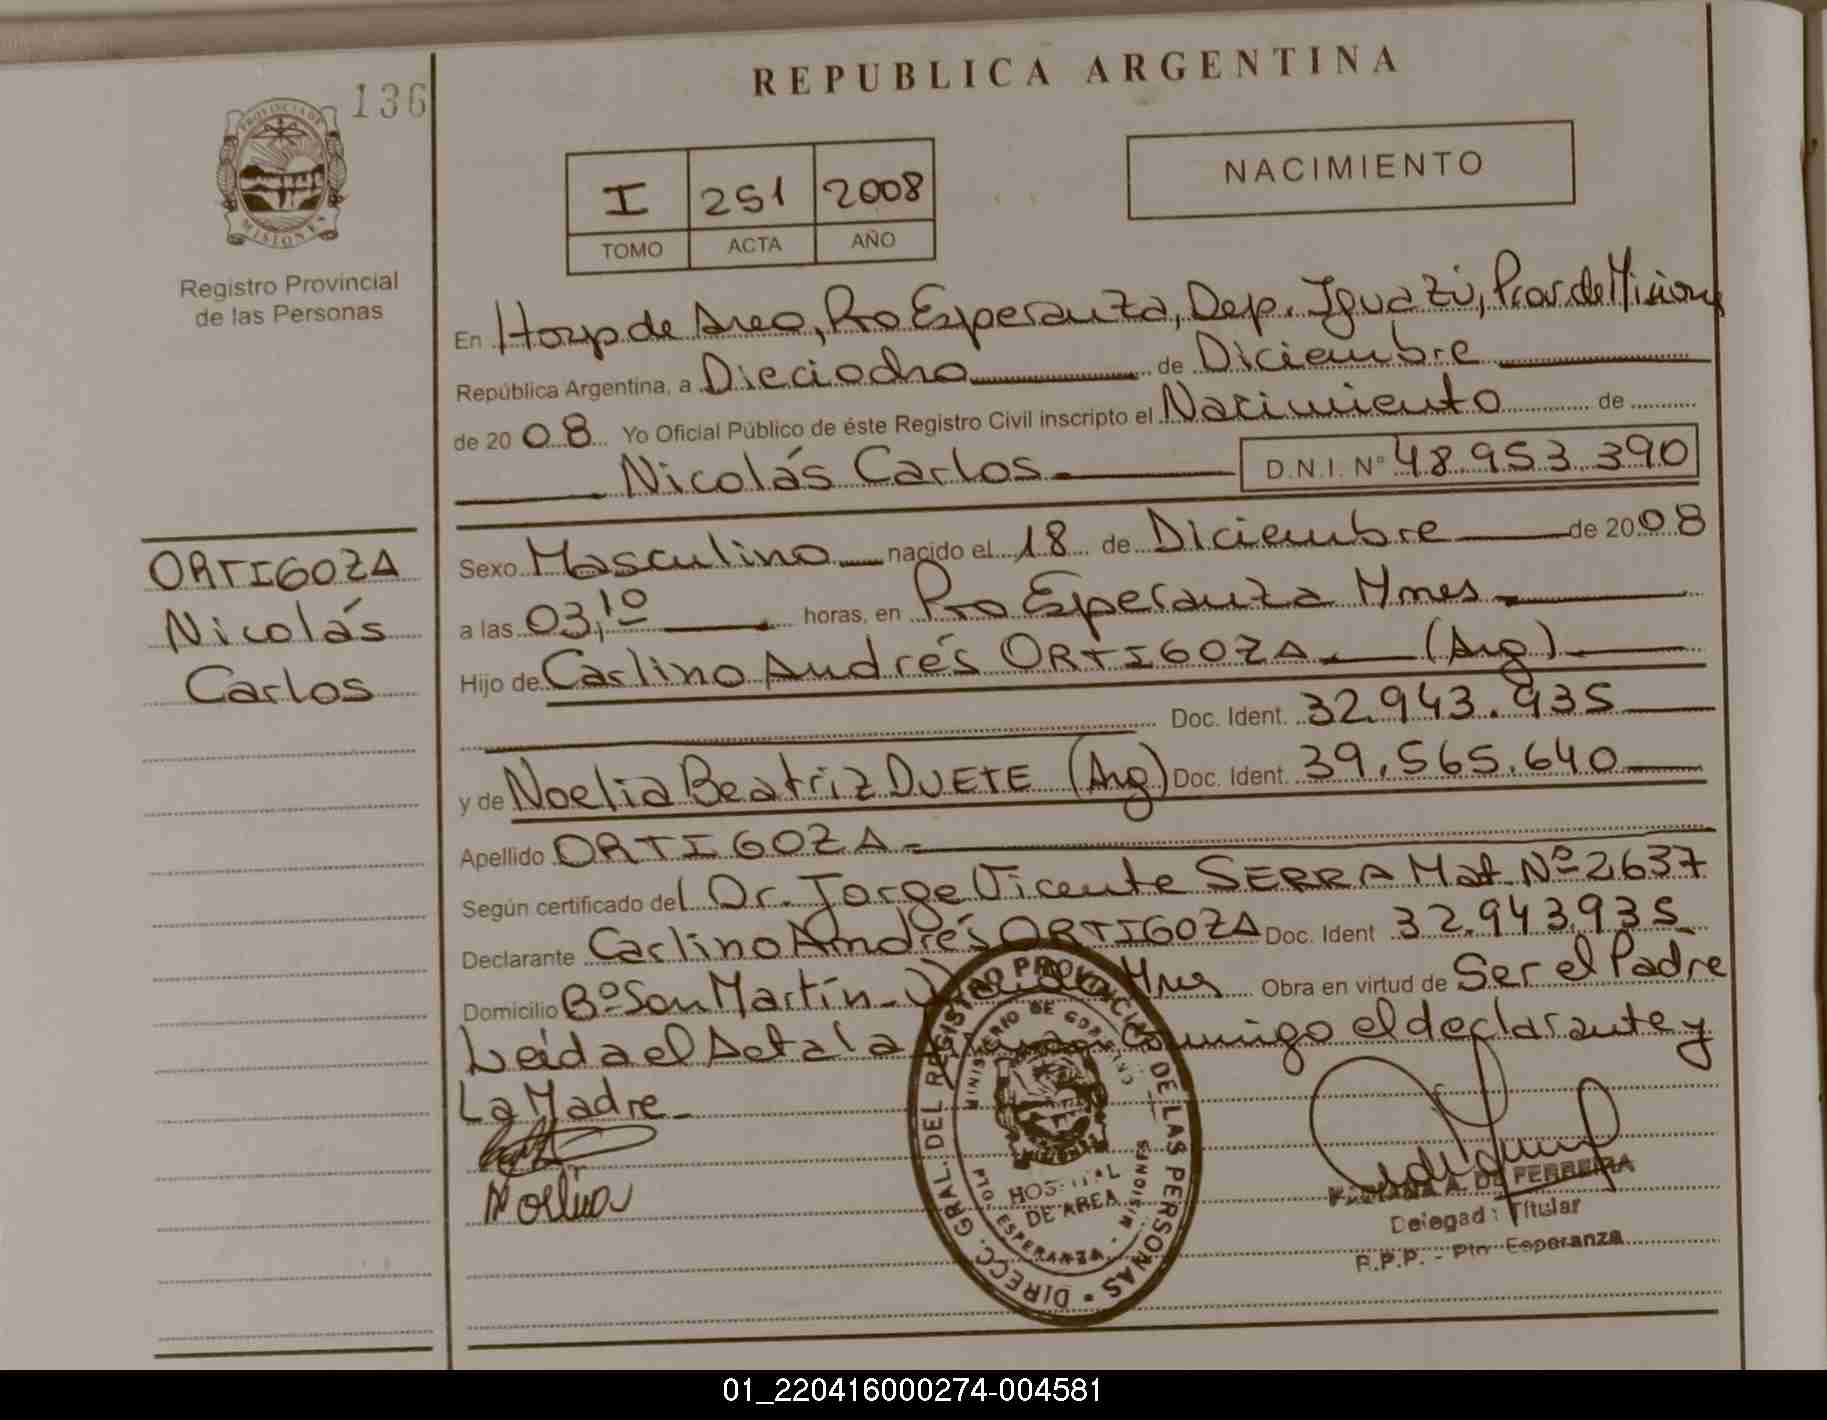 136
REPUBLICA ARGENTINA
PROVINCIA DE
MISIONES
Registro Provincial
de las Personas
I 251 2008
TOMO ACTA AÑO
NACIMIENTO
En Hosp de Area, Pto Esperanza, Dep. Iguazú, Prov. de Misiones
República Argentina, a Dieciocho de Diciembre
de 2008 Yo Oficial Público de éste Registro Civil inscripto el Nacimiento de
Nicolás Carlos D.N.I. Nº 48.953.390
ORTIGOZA
Nicolás
Carlos
Sexo Masculino nacido el 18 de Diciembre de 2008
a las 03,10 horas, en Pto Esperanza Mnes
Hijo de Carlino Andrés ORTIGOZA (Arg)
Doc. Ident. 32.943.935
y de Noelia Beatriz DUETE (Arg) Doc. Ident. 39.565.640
Apellido ORTIGOZA
Según certificado del Dr. Jorge Vicente SERRA Mat. Nº 2637
Declarante Carlino Andrés ORTIGOZA Doc. Ident 32.943.935
Domicilio Bº San Martín - Mnes Obra en virtud de Ser el Padre
Leida el Acta la conmigo el declarante y
La Madre
Noelia
DIRECC. GRAL. DEL REGISTRO PROVINCIAL DE LAS PERSONAS
MINISTERIO DE GOBIERNO
MISIONES
HOSPITAL
DE AREA
PTO. ESPERANZA - MISIONES
A. DE FERREIRA
Delegada Titular
R.P.P. - Pto. Esperanza
01_220416000274-004581